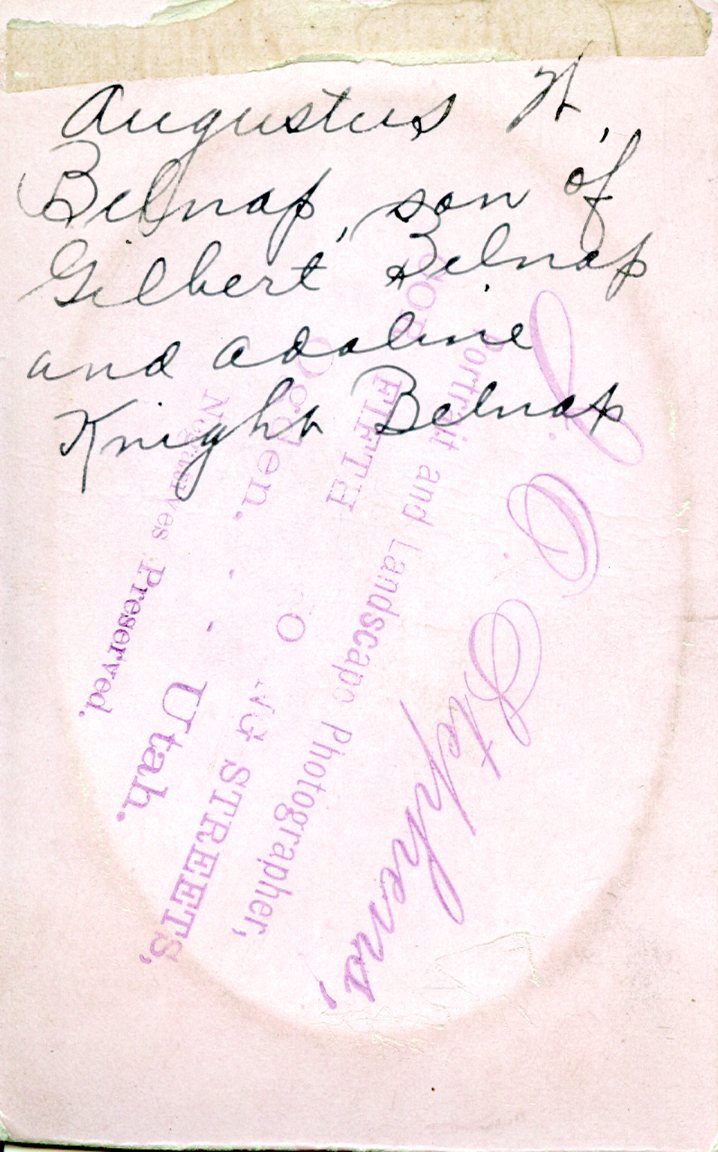 Augustus W.
Belnap, son of
Gilbert Belnap
and Adaline
Knight Belnap
J. C. Stephens,
Portrait and Landscape Photographer,
COR FIFTH STREETS,
Ogden, - - Utah.
Negatives Preserved.